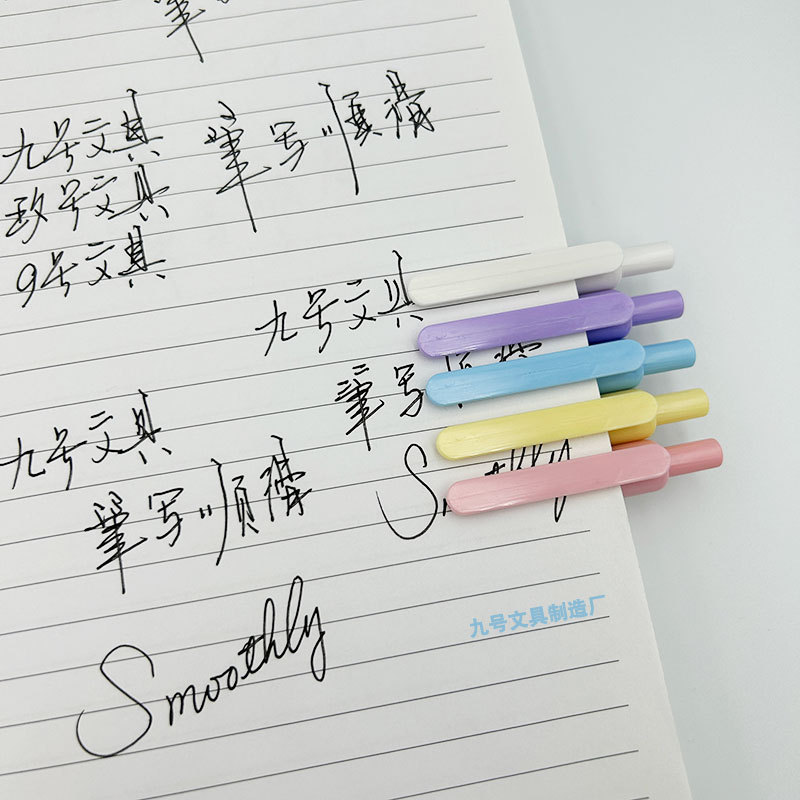 筆
九号文具 筆写順滑
玖号文具
9号文具
九号文具
筆写
九号文具
筆写順滑
Smoothly
九号文具制造厂